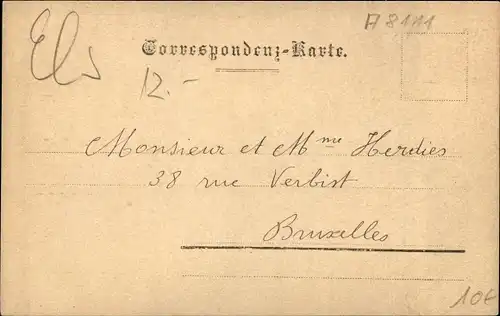 A 8111
Els
Correspondenz-Karte.
12.-
Monsieur et Mme Herdies
38 rue Verbist
Bruxelles
10€